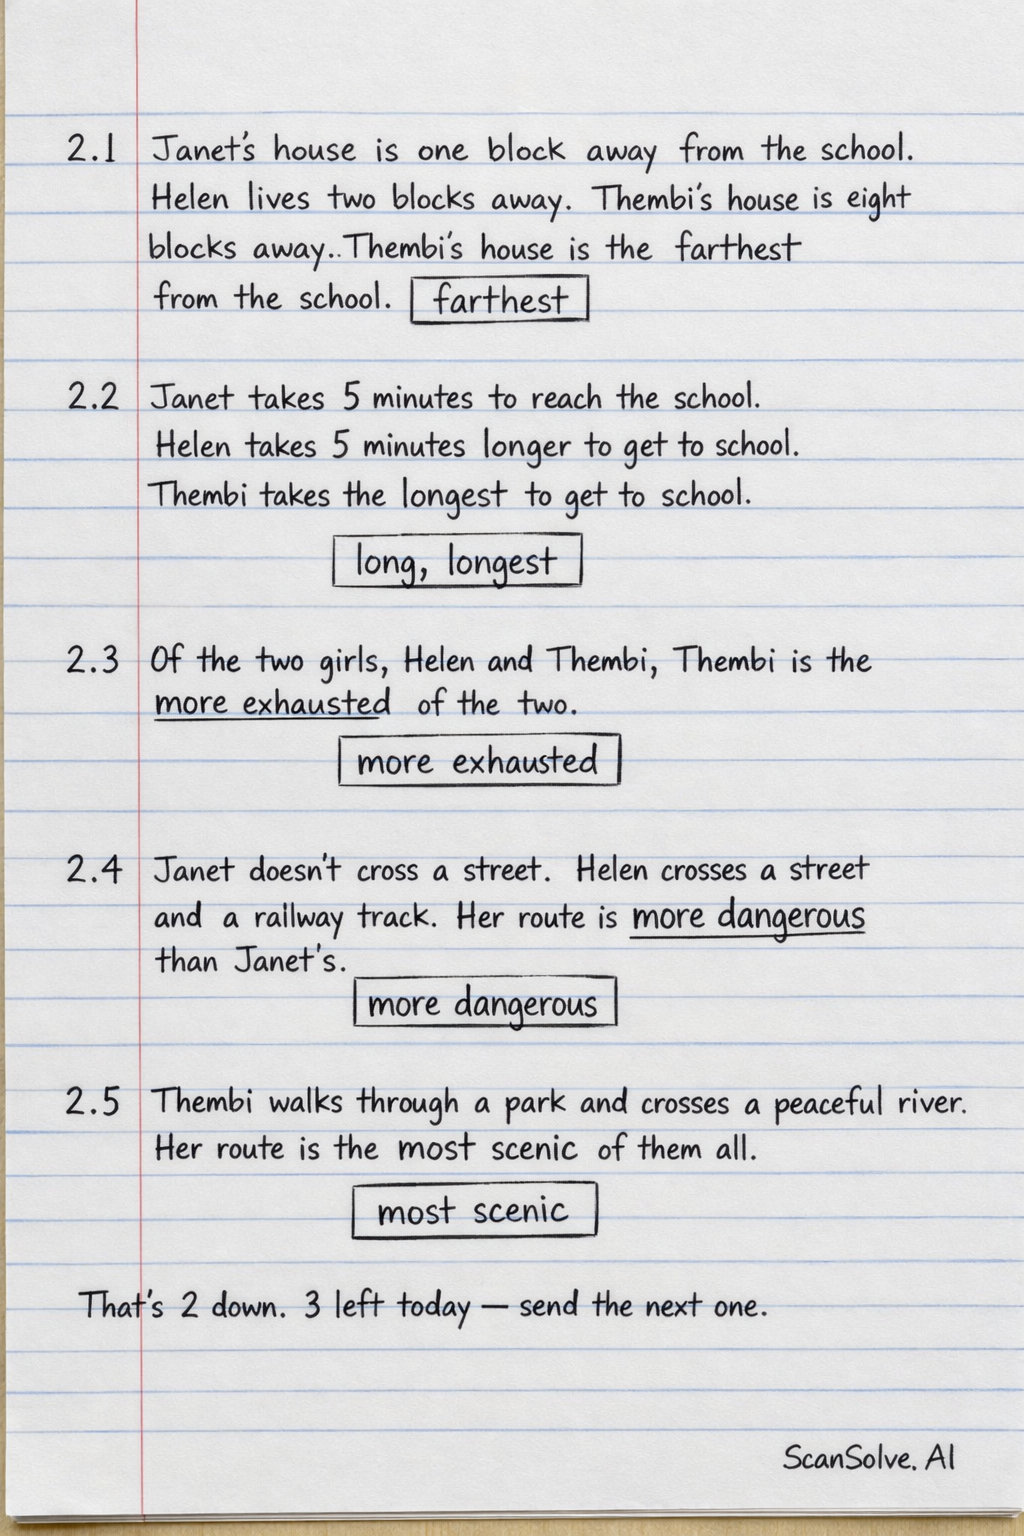 2.1 Janet's house is one block away from the school.
Helen lives two blocks away. Thembi's house is eight
blocks away.. Thembi's house is the farthest
from the school. farthest
2.2 Janet takes 5 minutes to reach the school.
Helen takes 5 minutes longer to get to school.
Thembi takes the longest to get to school.
long, longest
2.3 Of the two girls, Helen and Thembi, Thembi is the
more exhausted of the two.
more exhausted
2.4 Janet doesn't cross a street. Helen crosses a street
and a railway track. Her route is more dangerous
than Janet's.
more dangerous
2.5 Thembi walks through a park and crosses a peaceful river.
Her route is the most scenic of them all.
most scenic
That's 2 down. 3 left today — send the next one.
ScanSolve. AI